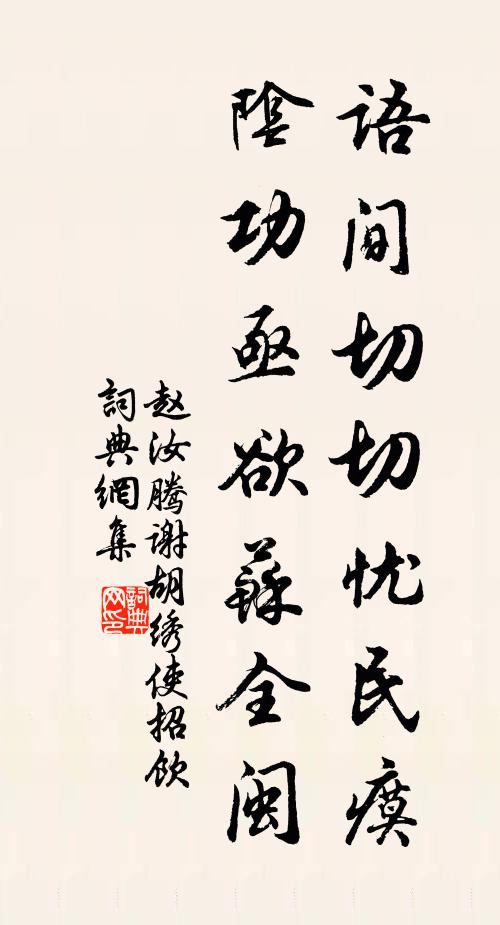 語间切切忧民瘼
陰功亟欲蘇全闽
赵汝腾谢胡绣使招饮
詞典網集
詞典网印